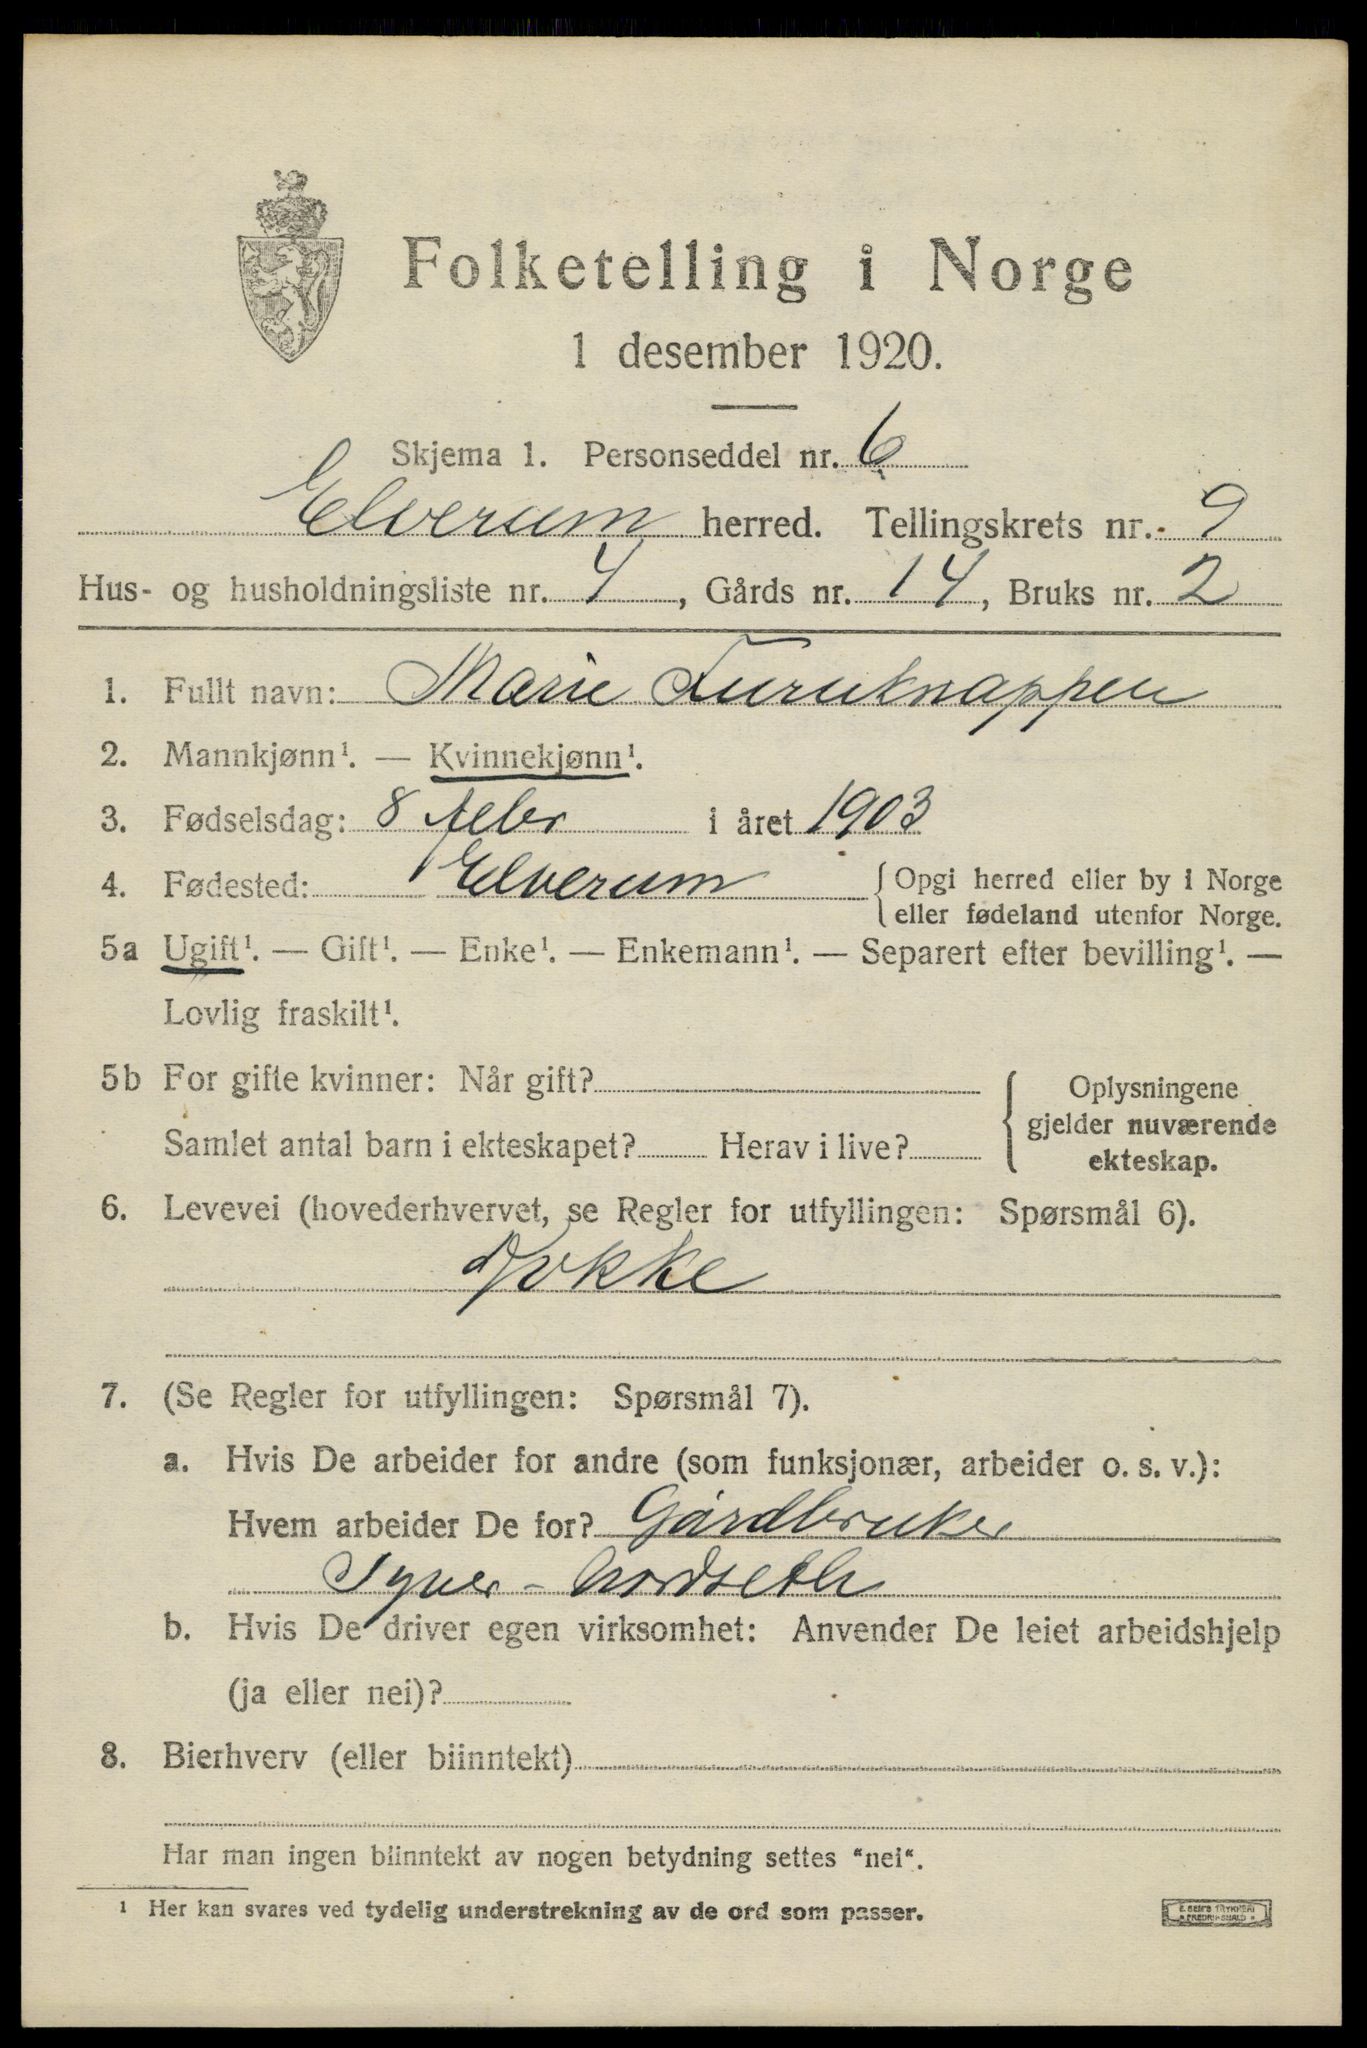 Folketelling i Norge
1 desember 1920.
Skjema 1. Personseddel nr. 6
Elverum herred. Tellingskrets nr. 9
Hus- og husholdningsliste nr. 4, Gårds nr. 14, Bruks nr. 2
1. Fullt navn: Marie Furuknappen
2. Mannkjønn¹. — Kvinnekjønn¹.
3. Fødselsdag: 8 febr i året 1903
4. Fødested: Elverum {Opgi herred eller by i Norge
eller fødeland utenfor Norge.
5a Ugift¹. — Gift¹. — Enke¹. — Enkemann¹. — Separert efter bevilling¹. —
Lovlig fraskilt¹.
5b For gifte kvinner: Når gift?
Samlet antal barn i ekteskapet? Herav i live?
{Oplysningene
gjelder nuværende
ekteskap.
6. Levevei (hovederhvervet, se Regler for utfyllingen: Spørsmål 6).
Kokke
7. (Se Regler for utfyllingen: Spørsmål 7).
a. Hvis De arbeider for andre (som funksjonær, arbeider o. s. v.):
Hvem arbeider De for? Gårdbruker
Syver - Nordseth
b. Hvis De driver egen virksomhet: Anvender De leiet arbeidshjelp
(ja eller nei)?
8. Bierhverv (eller biinntekt)
Har man ingen biinntekt av nogen betydning settes "nei".
¹ Her kan svares ved tydelig understrekning av de ord som passer.